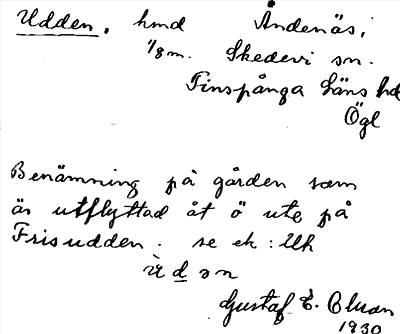 Udden, hmd Ändenäs,
1/8 m. Skedevi sn.
Finspånga Läns hd
Ögl
Benämning på gården som
är utflyttad åt ö ute på
Frisudden. se ek: Uk
ùdən
Gustaf E. Clman
1930